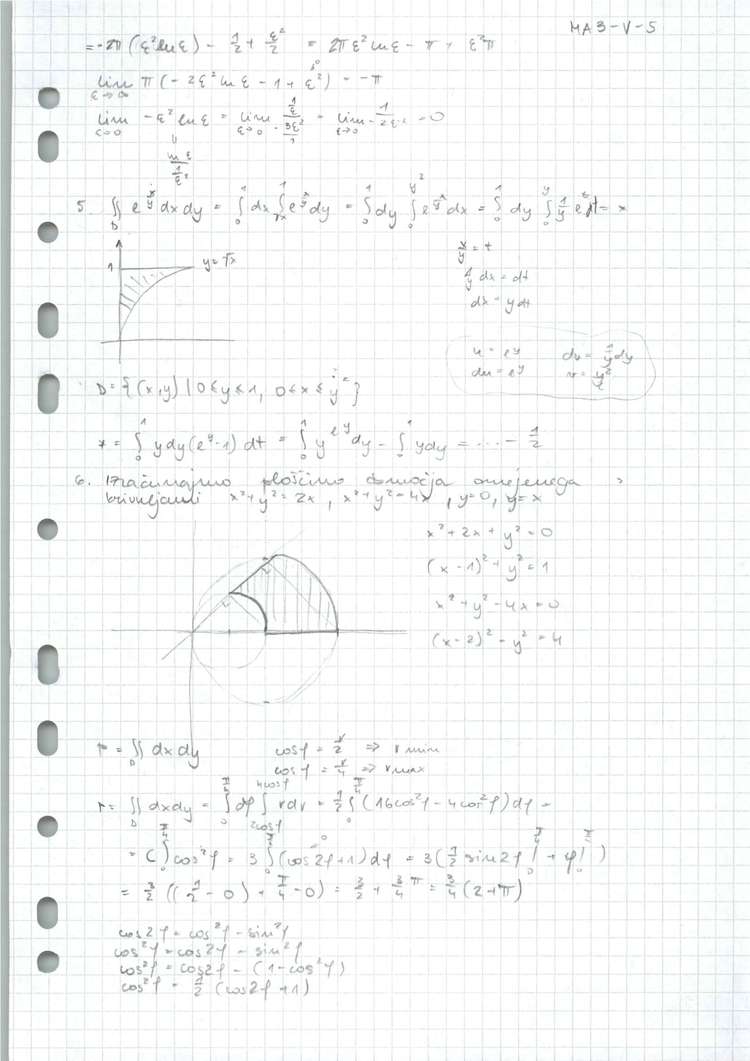 MA3-V-5
= -2π (ε² ln ε) - 1/2 + ε²/2 = 2π ε² ln ε - π + ε² π
lim ε→∞ π (-2ε² ln ε - 1 + ε²) = -π
lim ε→0 -ε² ln ε = lim ε→0
= lim ε→0 - 1/2ε
= 0
ln ε / 1/ε²
5. ∬_D e^(x/y) dx dy = ∫₀¹ dx ∫_√x^1 e^(x/y) dy = ∫₀¹ dy ∫₀^(y²) e^(x/y) dx = ∫₀¹ dy ∫₀^y
= *
1
y = √x
x/y = t
1/y dx = dt
dx = y dt
u = e^y dv = 1/y dy
du = e^y
D = {(x,y) | 0 ≤ y ≤ 1, 0 ≤ x ≤ y²}
* = ∫₀¹ y dy (e^y - 1) dt = ∫₀¹ y e^y dy - ∫₀¹ y dy = ... - 1/2
6. Izračunajmo ploščino območja omejenega s
krivuljami x² + y² = 2x, x² + y² = 4x, y = 0, y = x
x² + 2x + y² = 0
(x - 1)² + y² = 1
x² + y² - 4x = 0
(x - 2)² - y² = 4
= ∬_D dx dy cos φ = r/2 ⇒ r min
cos φ = r/4 ⇒ r max
= ∬_D dx dy = ∫₀^(π/4) dφ ∫_(2cosφ)^(4cosφ) r dr = 1/2 ∫₀^(π/4) (16cos²φ - 4cos²φ) dφ =
= 6 ∫₀^(π/4) cos²φ = 3 ∫₀^(π/4) (cos 2φ + 1) dφ = 3 (1/2 sin 2φ |₀^(π/4) + φ |₀^(π/4))
= 3/2 ((1/2 - 0) + π/4 - 0) = 3/2 + 3/4 π = 3/4 (2 + π)
cos 2φ = cos²φ - sin²φ
cos²φ = cos 2φ - sin²φ
cos²φ = cos 2φ - (1 - cos²φ)
cos²φ = 1/2 (cos 2φ + 1)